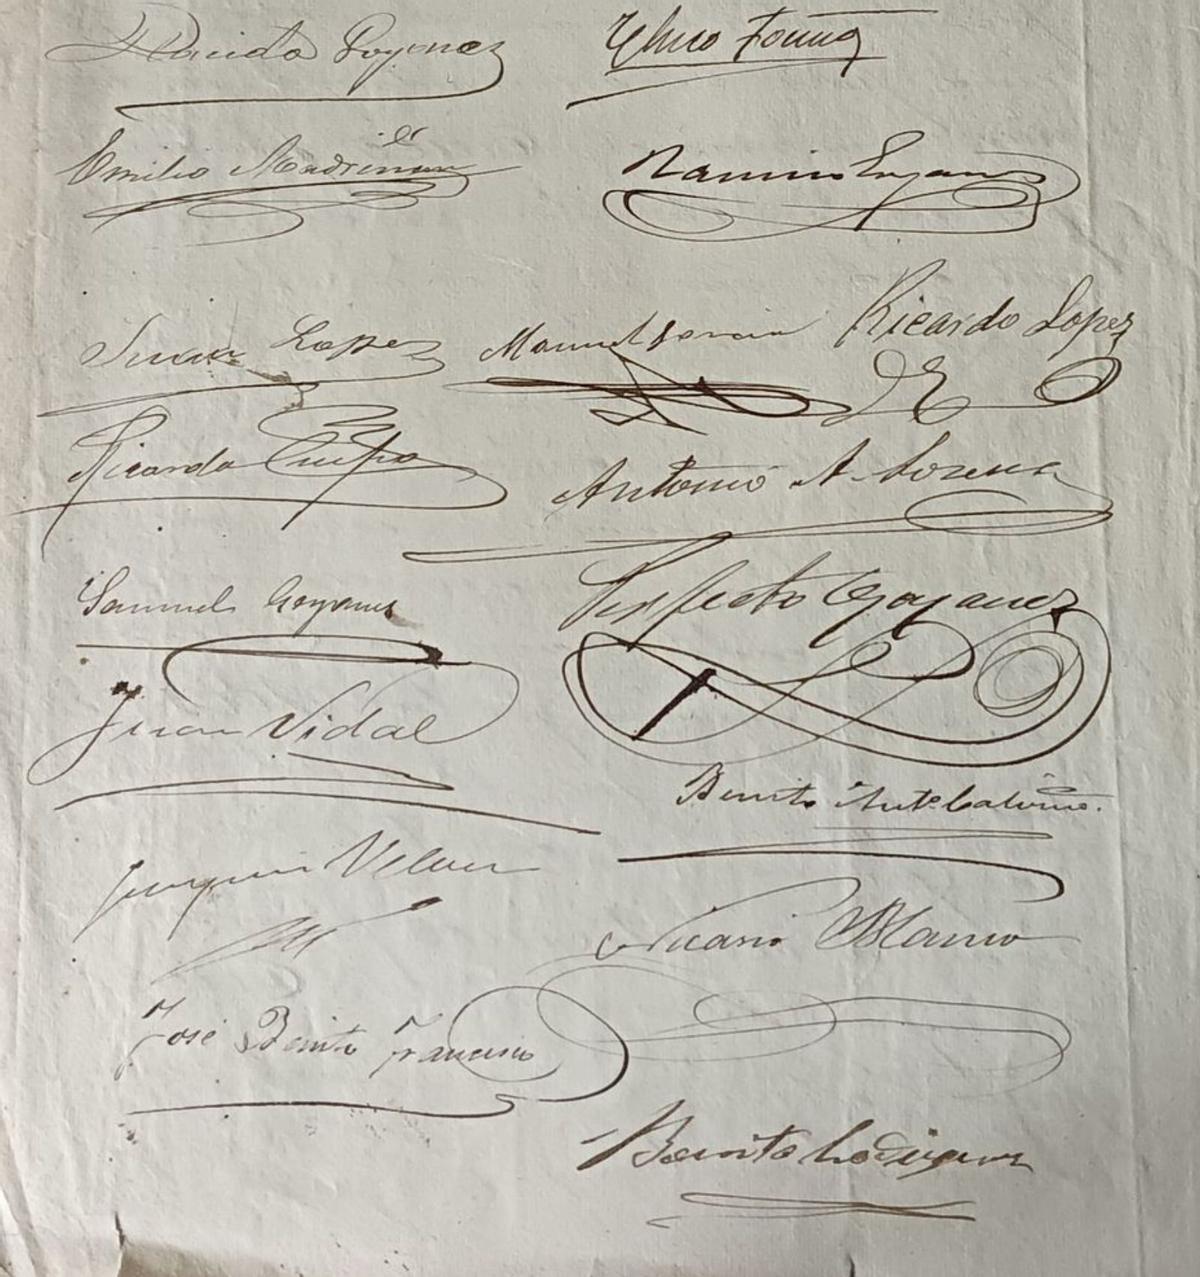 Placido Goyanez
Emilio Madriñan
Ramiro Goyanes
Juan Lopez Manuel Garcia Ricardo Lopez
Ricardo Crespo
Antonio A. Lorenzo
Samuel Goyanes
Perfecto Goyanez
Juan Vidal
Benito
Joaquin
Nicasio Blanco
José Benito Francisco
Benito Rodriguez